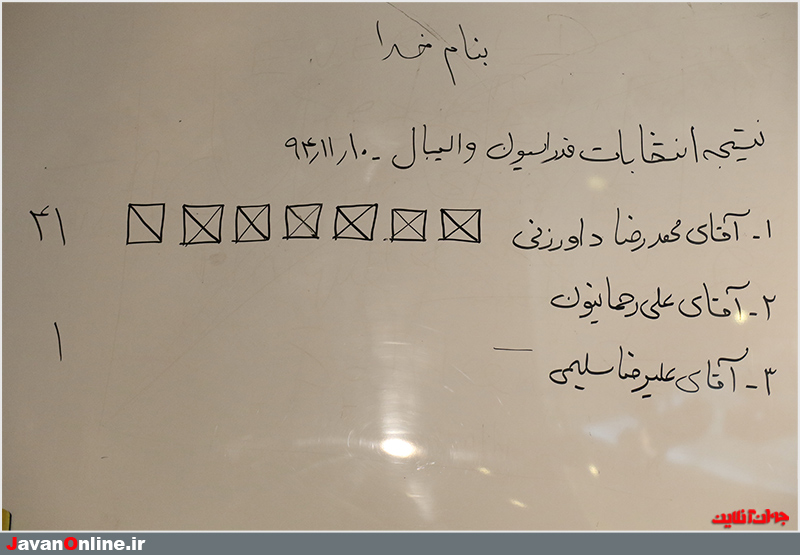 بنام خدا
نتیجه انتخابات فدراسیون والیبال - ۹۴٫۱۱٫۱۰
۱- آقای محمدرضا داورزنی ۴۱
۲- آقای علی رحمانیون
۳- آقای علیرضا سلیمی — ۱
جوان آنلاین
JavanOnline.ir